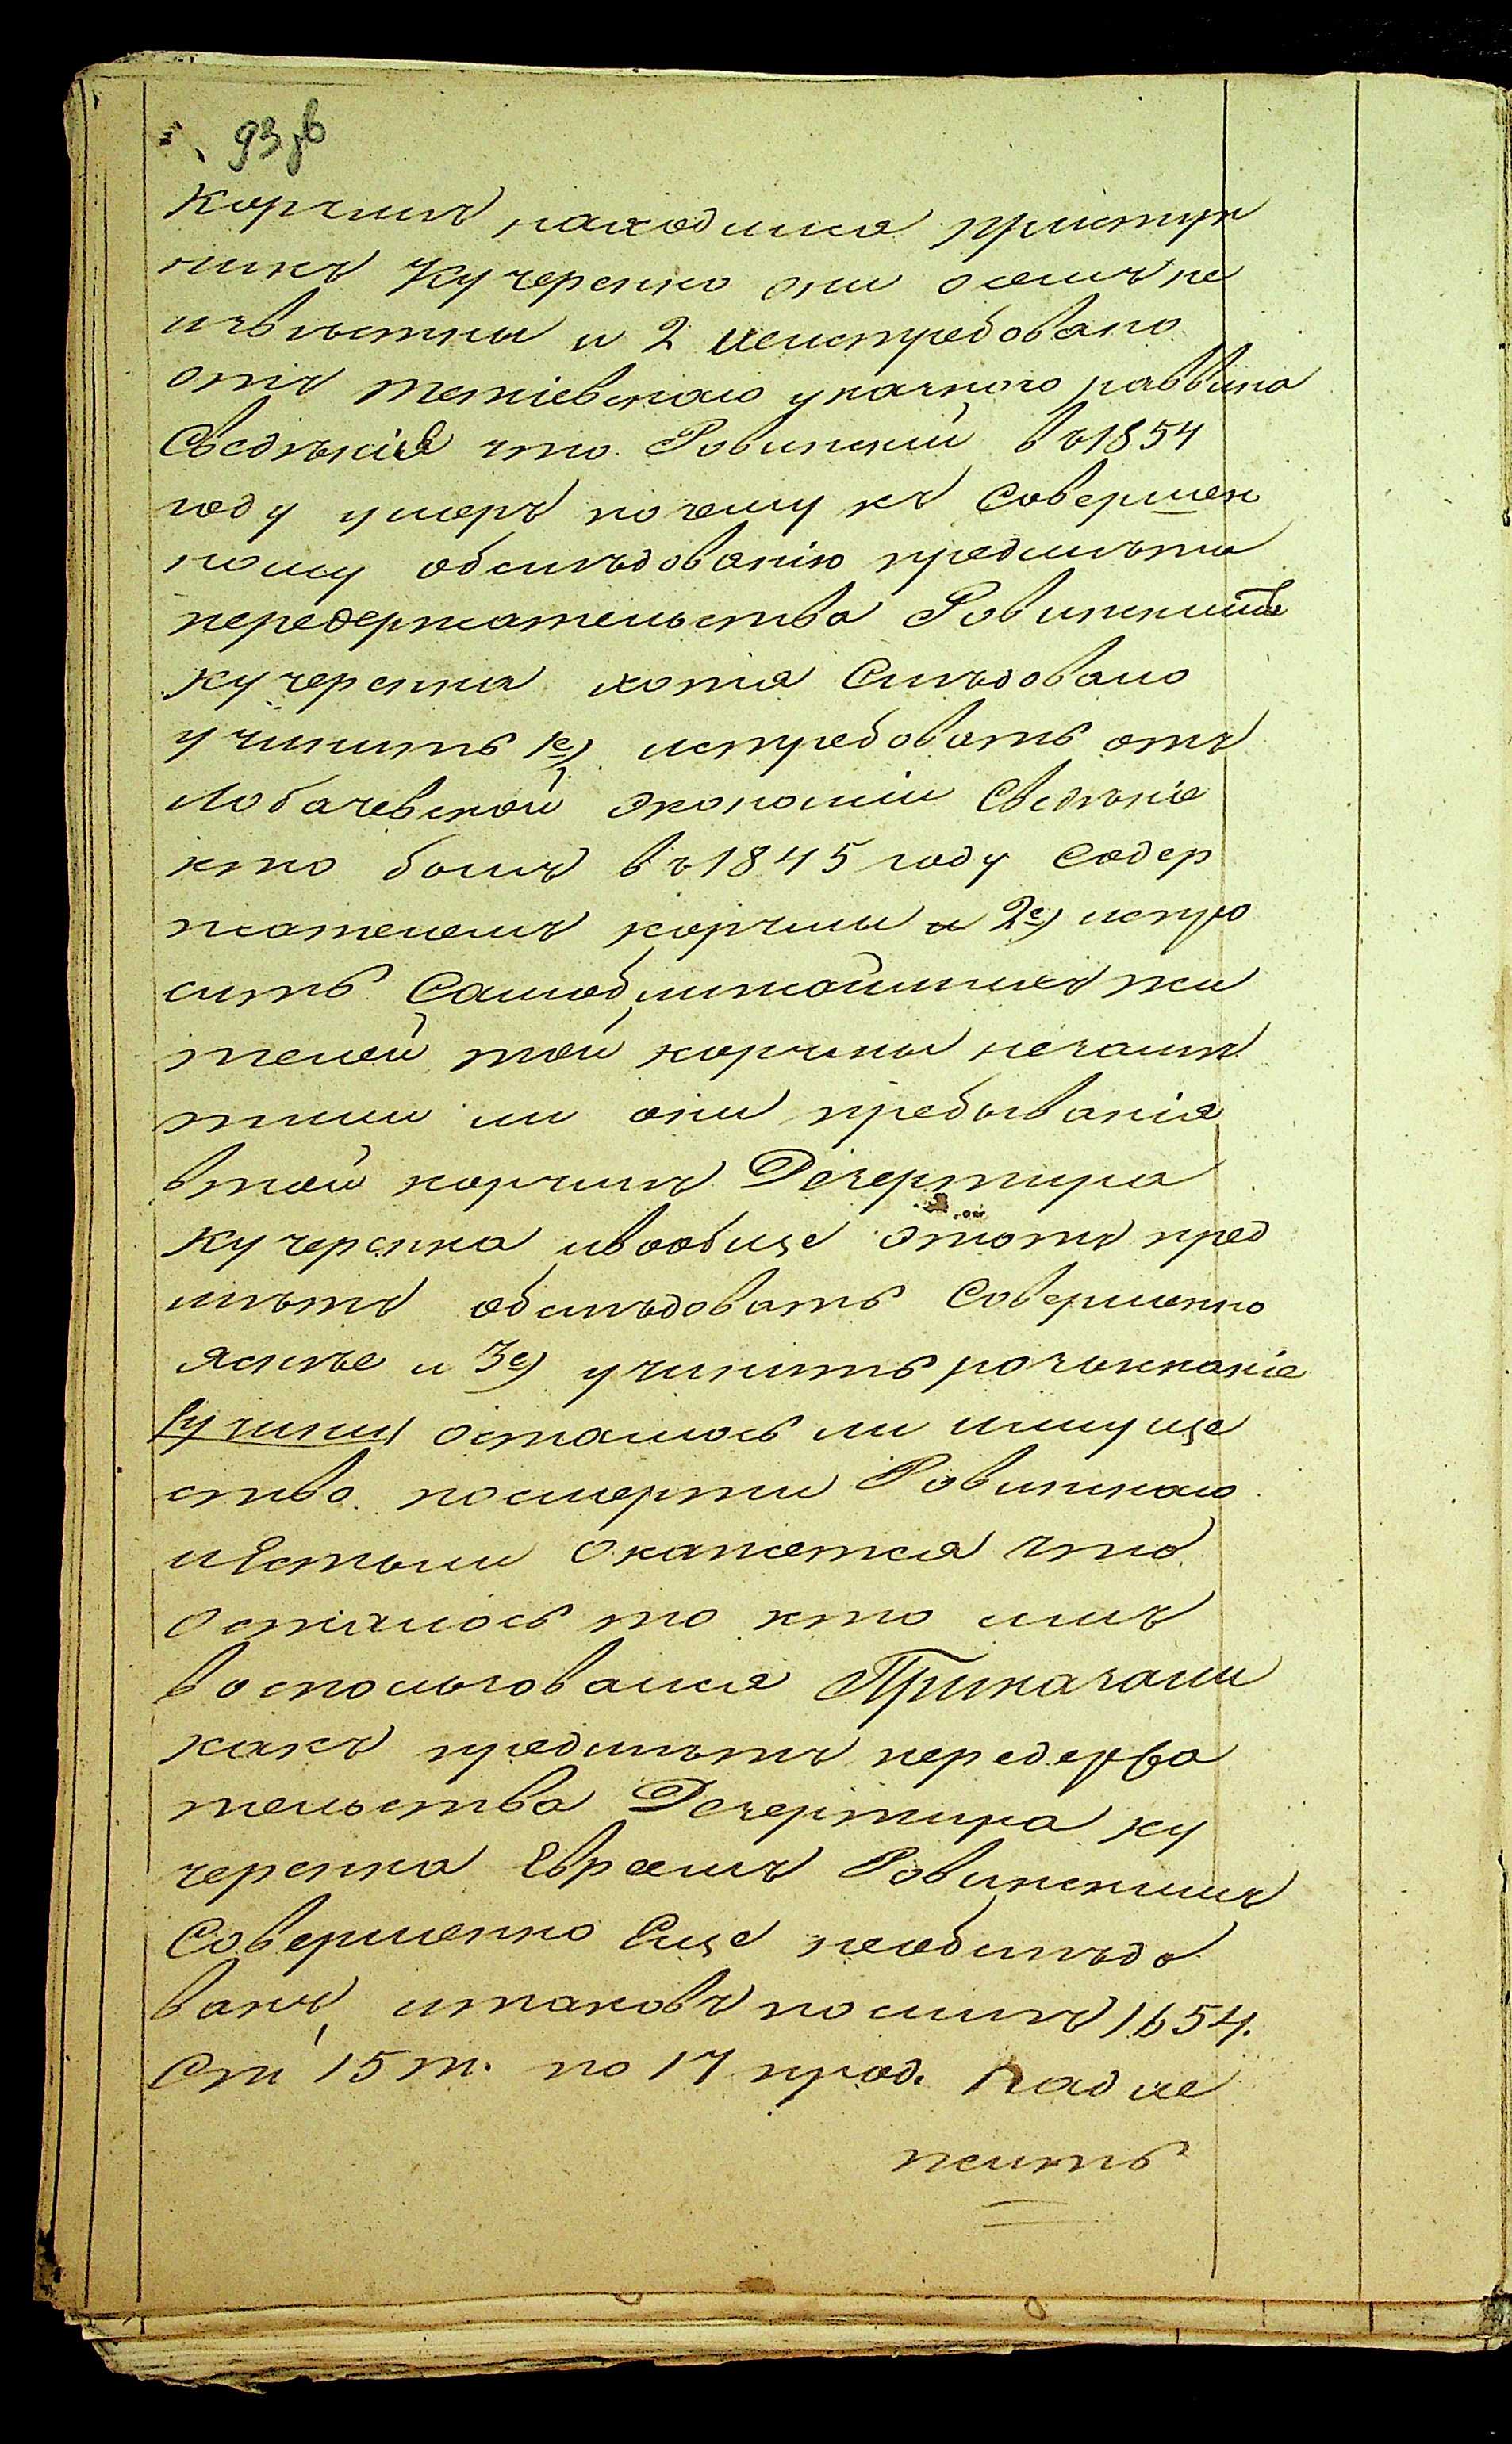 93 зв
Корчмѣ находился приступ
никъ Кучеренко они о семъ не
извѣстны и 2 неистребовано
отъ тетіевскаго указнаго раввина
Сведѣнія что Ровинскій въ 1854
году умеръ почему къ Совершен
ному обслѣдованію предмѣта
передержательства Ровинскимъ
кучеренка хотя Слѣдовало
учинить 1е) истребовать отъ
Лобачевской Экономіи Сведѣніе
кто былъ въ 1845 году Содер
жателемъ корчмы и 2е) испро
сить Самоближайшихъ жи
телей той корчмы незамѣ
тили ли они пребыванія
втой корчмѣ Дезертира
Кучеренка ивообще Этотъ пред
мѣтъ обслѣдовать Совершенно
яснѣе и 3е) учинить розыскание
осталось ли имуще
ство посмерти Ровинскаго
иЕстьли Окажется что
Осталось то кто имъ
воспользовался Приказали
какъ предмѣтъ передержа
тельства Дезертира ку
черенка Евреемъ Ровинскимъ
Совершенно Еще необслѣдо
ванъ, итаковъ посилѣ 1654.
Ст 15 т. по 17 прод. Надле
житъ